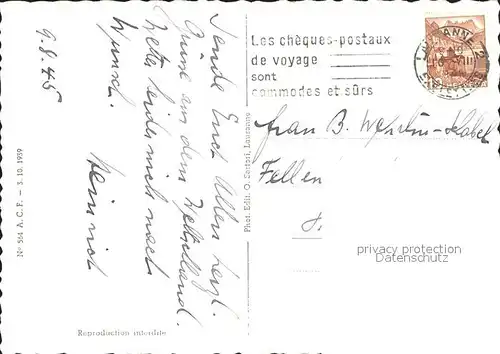 9.8.45
Sende Euch Allen herzl.
Grüsse aus dem Zeltlland.
Wetter leider nich nach
Wunsch.
Heinrich
No 564 A.C.F. — 3.10.1939
Reproduction interdite
Phot. Edit. O. Sartori, Lausanne
Les chèques-postaux
de voyage
sont
commodes et sûrs
LAUSANNE 2
Frau B.
Fellen
privacy protection
Datenschutz